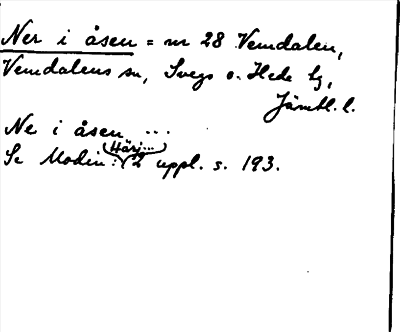 Ner i åsen = nr 28 Vemdalen,
Vemdalens sn, Svegs o. Hede tg,
Jämtl. l.
Ne i åsen ...
Se Modin: (Härj...) 2 uppl. s. 193.